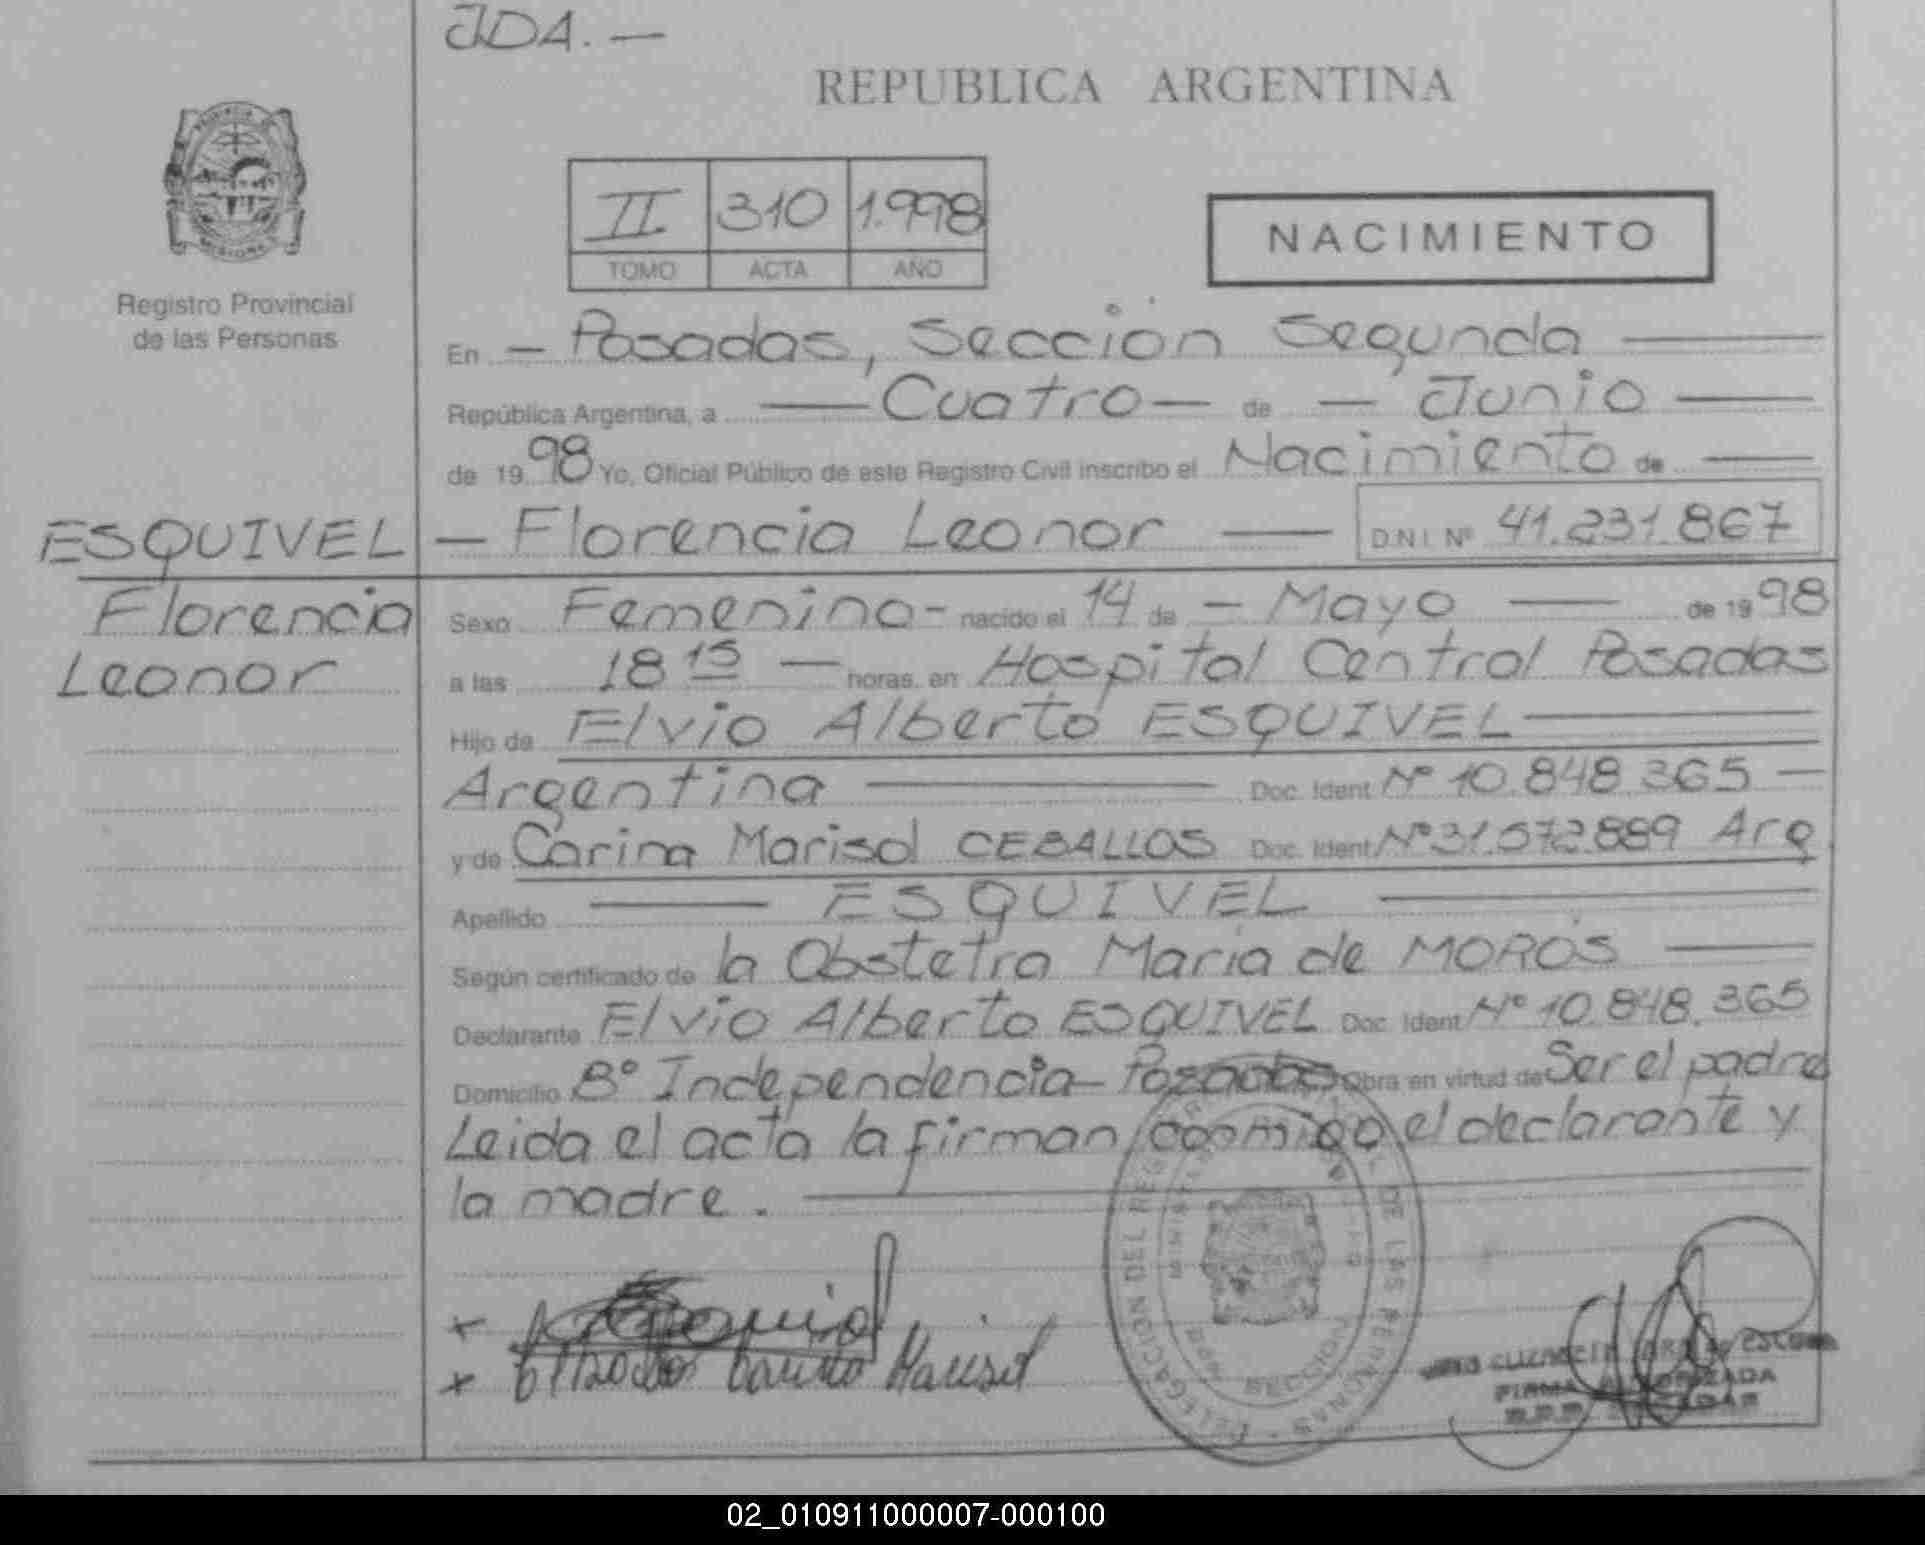 JDA. —
REPUBLICA ARGENTINA
II 310 1.998
TOMO ACTA AÑO
NACIMIENTO
Registro Provincial
de las Personas
En — Posadas, Sección Segunda
República Argentina, a — Cuatro — de — Junio —
de 1998 Yo, Oficial Público de este Registro Civil inscribo el Nacimiento de —
ESQUIVEL — Florencia Leonor — D.N.I. Nº 41.231.867
Florencia
Leonor
Sexo Femenino - nacido el 14 de — Mayo — de 1998
a las 18 15 — horas, en Hospital Central Posadas
Hijo de Elvio Alberto ESQUIVEL —
Argentina — Doc. Ident. Nº 10.848.365 —
y de Carina Marisol CEBALLOS Doc. Ident. Nº 31.572.889 Arg
Apellido — ESQUIVEL —
Según certificado de la Obstetra María de MOROS —
Declarante Elvio Alberto ESQUIVEL Doc. Ident. Nº 10.848.365
Domicilio Bº Independencia - Posadas Obra en virtud de Ser el padre
Leida el acta la firman conmigo el declarante y
la madre. —
x
x Marisol
DELEGACION DEL REGISTRO DE LAS PERSONAS
SECCION
FIRMA AUTORIZADA
02_010911000007-000100